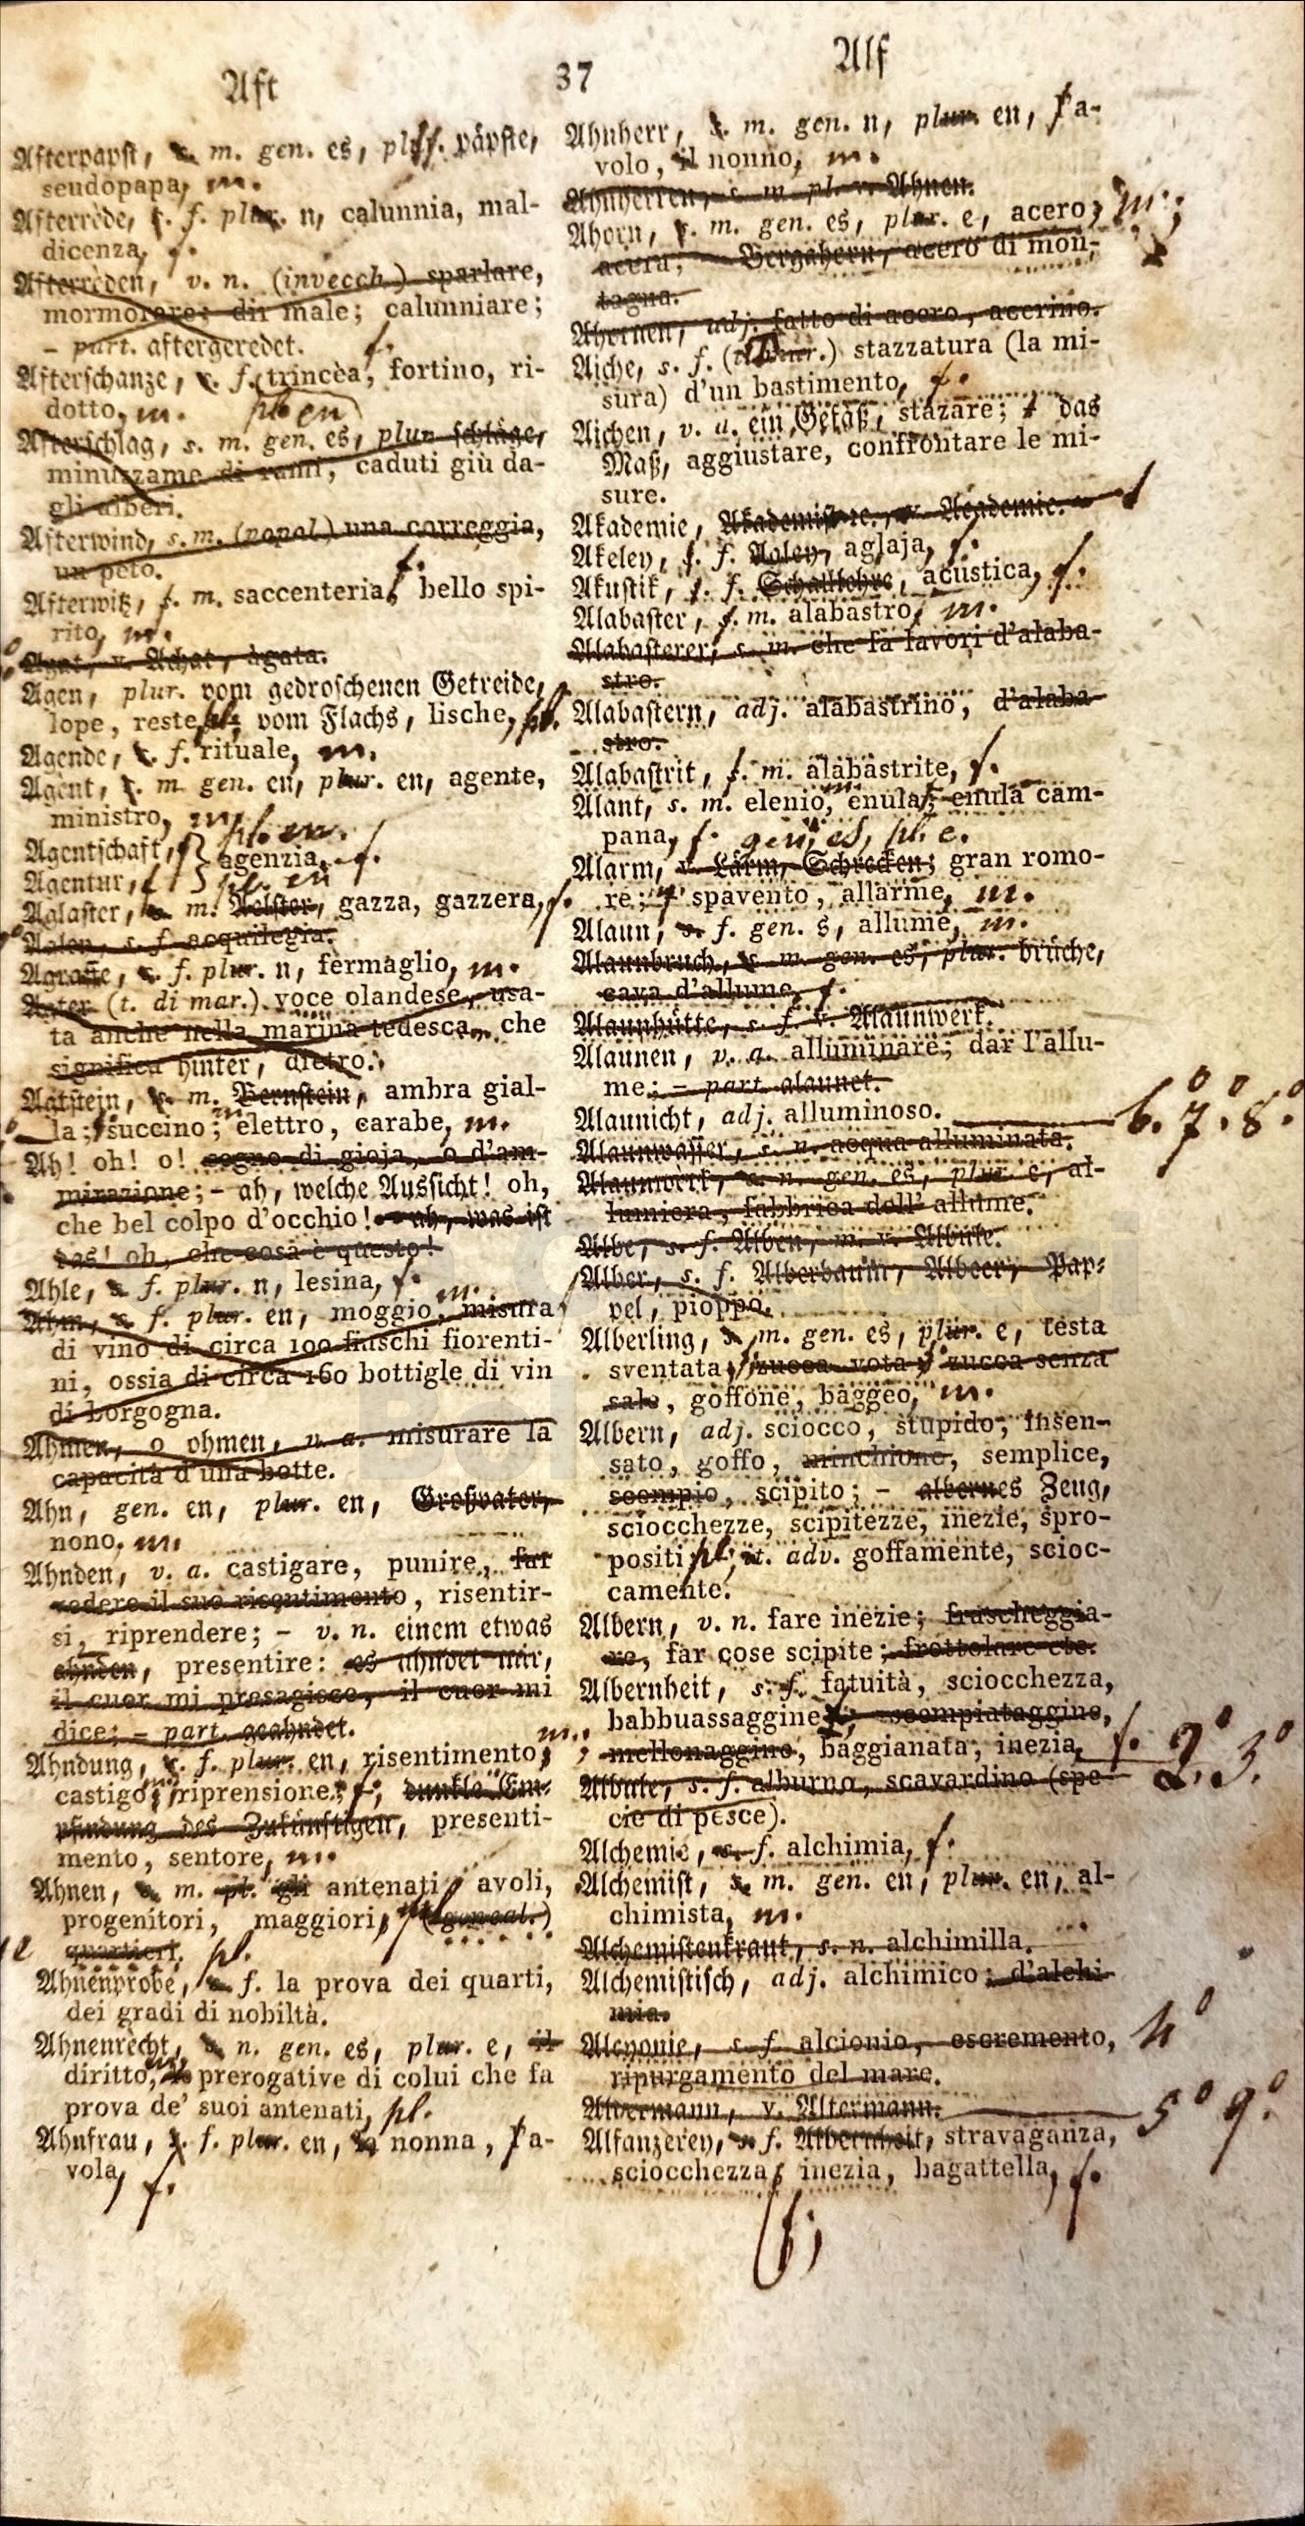 Aft
37
Alf
Afterpapst, s. m. gen. es, plur. päpste,
seudopapa, m.
Afterrède, s. f. plur. n, calunnia, mal-
dicenza, f.
Afterrèden, v. n. (invecch.) sparlare,
mormorare; dir male; calunniare;
- part. aftergeredet.
Afterschanze, s. f. trincèa, fortino, ri-
dotto, m. pl. en
Afterschlag, s. m. gen. es, plur. schläge,
minuzzame di rami, caduti giù da-
gli alberi.
Afterwind, s. m. (popol.) una correggia,
un peto.
Afterwitz, s. m. saccenteria, f. bello spi-
rito, m.
Agat, v. Achat, àgata.
Agen, plur. vom gedroschenen Getreide,
lope, reste, pl; vom Flachs, lische, pl.
Agende, s. f. rituale, m.
Agènt, s. m gen. en, plur. en, agente,
ministro, m.
Agentschaft, f. pl. en.
agenzia, f.
Agentur, f. pl. en
Aglaster, s. m. Aelster, gazza, gazzera, f.
Aglen, s. f. acquilegia.
Agraffe, s. f. plur. n, fermaglio, m.
Agter (t. di mar.) voce olandese, usa-
ta anche nella marina tedesca, che
significa hinter, dietro.
Agtstein, s. m. Bernstein, ambra gial-
la; f succino; m elettro, carabe, m.
Ah! oh! o! segno di gioja, o d'am-
mirazione; - ah, welche Aussicht! oh,
che bel colpo d'occhio! - ah, was ist
das! oh, che cosa è questo!
Ahle, s. f. plur. n, lesina, f.
Ahm, s. f. plur. en, moggio, m. misura
di vino di circa 100 fiaschi fiorenti-
ni, ossia di circa 160 bottigle di vin
di borgogna.
Ahmen, o ohmen, v. a. misurare la
capacità d'una botte.
Ahn, gen. en, plur. en, Großvater,
nono. m.
Ahnden, v. a. castigare, punire, far
vedere il suo risentimento, risentir-
si, riprendere; - v. n. einem etwas
ahnden, presentire: es ahndet mir,
il cuor mi presagisce, il cuor mi
dice; - part. geahndet.
Ahndung, s. f. plur. en, risentimento, m.
castigo; m riprensione; f; dunkle Em-
pfindung des Zukünftigen, presenti-
mento, sentore, m.
Ahnen, s. m. pl. gli antenati, avoli,
progenitori, maggiori, pl (geneal.)
quartieri. pl.
Ahnenprobe, s. f. la prova dei quarti,
dei gradi di nobiltà.
Ahnenrècht, s. n. gen. es, plur. e, il
diritto, m prerogative di colui che fa
prova de' suoi antenati, pl.
Ahnfrau, s. f. plur. en, la nonna, l'a-
vola, f.
Ahnherr, s. m. gen. n, plur. en, l'a-
volo, il nonno, m.
Ahnherren, s. m. pl. v. Ahnen.
Ahorn, s. m. gen. es, plur. e, acero, m.;
acera; - Bergahorn, acero di mon-
tagna.
Ahornen, adj. fatto di acero, acerino.
Aiche, s. f. (t. di mar.) stazzatura (la mi-
sura) d'un bastimento, f.
Aichen, v. a. ein Gefäß, stazare; das
Maß, aggiustare, confrontare le mi-
sure.
Akademie, Akademist, v. Academie.
Akeley, s. f. Agley, aglaja, f.
Akustik, s. f. Schalllehre, acùstica, f.
Alabaster, s. m. alabastro, m.
Alabasterer, s. m. che fa lavori d'alaba-
stro.
Alabastern, adj. alabastrino, d'alaba-
stro.
Alabastrit, s. m. alabastrite, f.
Alant, s. m. elenio, m enula f; enula cam-
pana, f. gen. es, pl. e.
Alarm, v. Lärm, Schrecken; gran romo-
re; spavento, allarme, m.
Alaun, s. f. gen. s, allume, m.
Alaunbruch, s. m. gen. es, plur. brüche,
cava d'allume, f.
Alaunhütte, s. f. v. Alaunwerk.
Alaunen, v. a. alluminare; dar l'allu-
me; - part. alaunet.
Alaunicht, adj. alluminoso. 6.° 7.° 8.°
Alaunwasser, s. n. acqua alluminata.
Alaunwèrk, s. n. gen. es, plur. e, al-
lumiera, fabbrica dell' allume.
Albe, s. f. Alben, m. v. Albule.
Alber, s. f. Alberbaum, Albeer, Pap-
pel, pioppo.
Alberling, s. m. gen. es, plur. e, testa
sventata, zucca vota, zucca senza
sale, goffone, baggeo, m.
Albern, adj. sciocco, stupido, insen-
sato, goffo, minchione, semplice,
scempio, scipito; - albernes Zeug,
sciocchezze, scipitezze, inezie, spro-
positi pl; it. adv. goffamente, scioc-
camente.
Albern, v. n. fare inezie; frascheggia-
re, far cose scipite; frottolare etc.
Albernheit, s. f. fatuità, sciocchezza,
babbuassaggine, scempiataggine,
mellonaggine, baggianata, inezia, f. 2.° 3.°
Albule, s. f. alburno, scavardino (spe-
cie di pesce).
Alchemie, s. f. alchimia, f.
Alchemist, s. m. gen. en, plur. en, al-
chimista, m.
Alchemistenkraut, s. n. alchimilla.
Alchemistisch, adj. alchimico; d'alchi-
mia.
Alcyonie, s. f. alcionio, escremento, 4°
ripurgamento del mare.
Aldermann, v. Altermann. 5° 9.°
Alfanzerey, s. f. Albernheit, stravaganza,
sciocchezza, inezia, bagattella, f.
f;